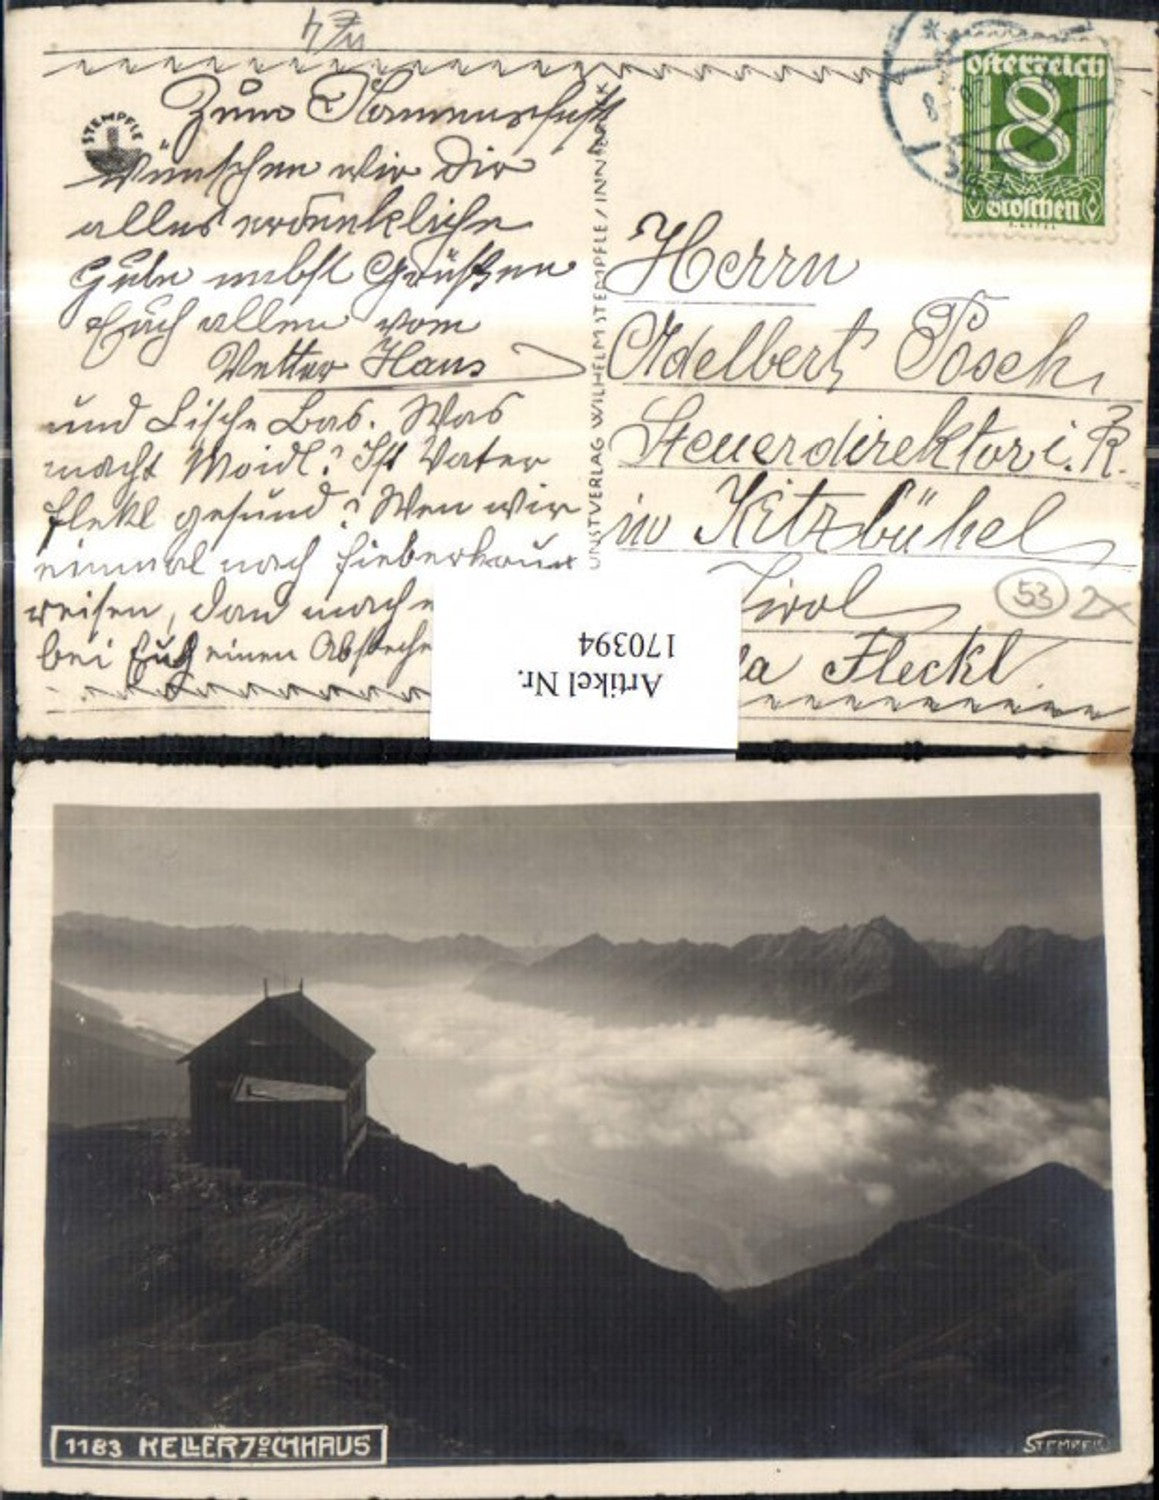 STEMPFLE
Zum Namensfest
Wünschen wir Dir
alles erdenkliche
Gute nebst Grüßen
Euch allen vom
Vetter Hans
und Lische Bas. Was
macht Moidl? Ist Vater
Flekl gesund? Wen wir
einmal nach Fieberbrunn
reisen, dan machen
bei Euch einen Abstecher
UNSTVERLAG WILHELM STEMPFLE / INNSBRUCK
österreich
8
Groschen
Herrn
Adelbert Posch,
Steuerdirektor i. R.
in Kitzbühel
Tirol
53 2x
Fleckl.
Artikel Nr.
170394
1183 KELLERJOCHHAUS
STEMPFLE